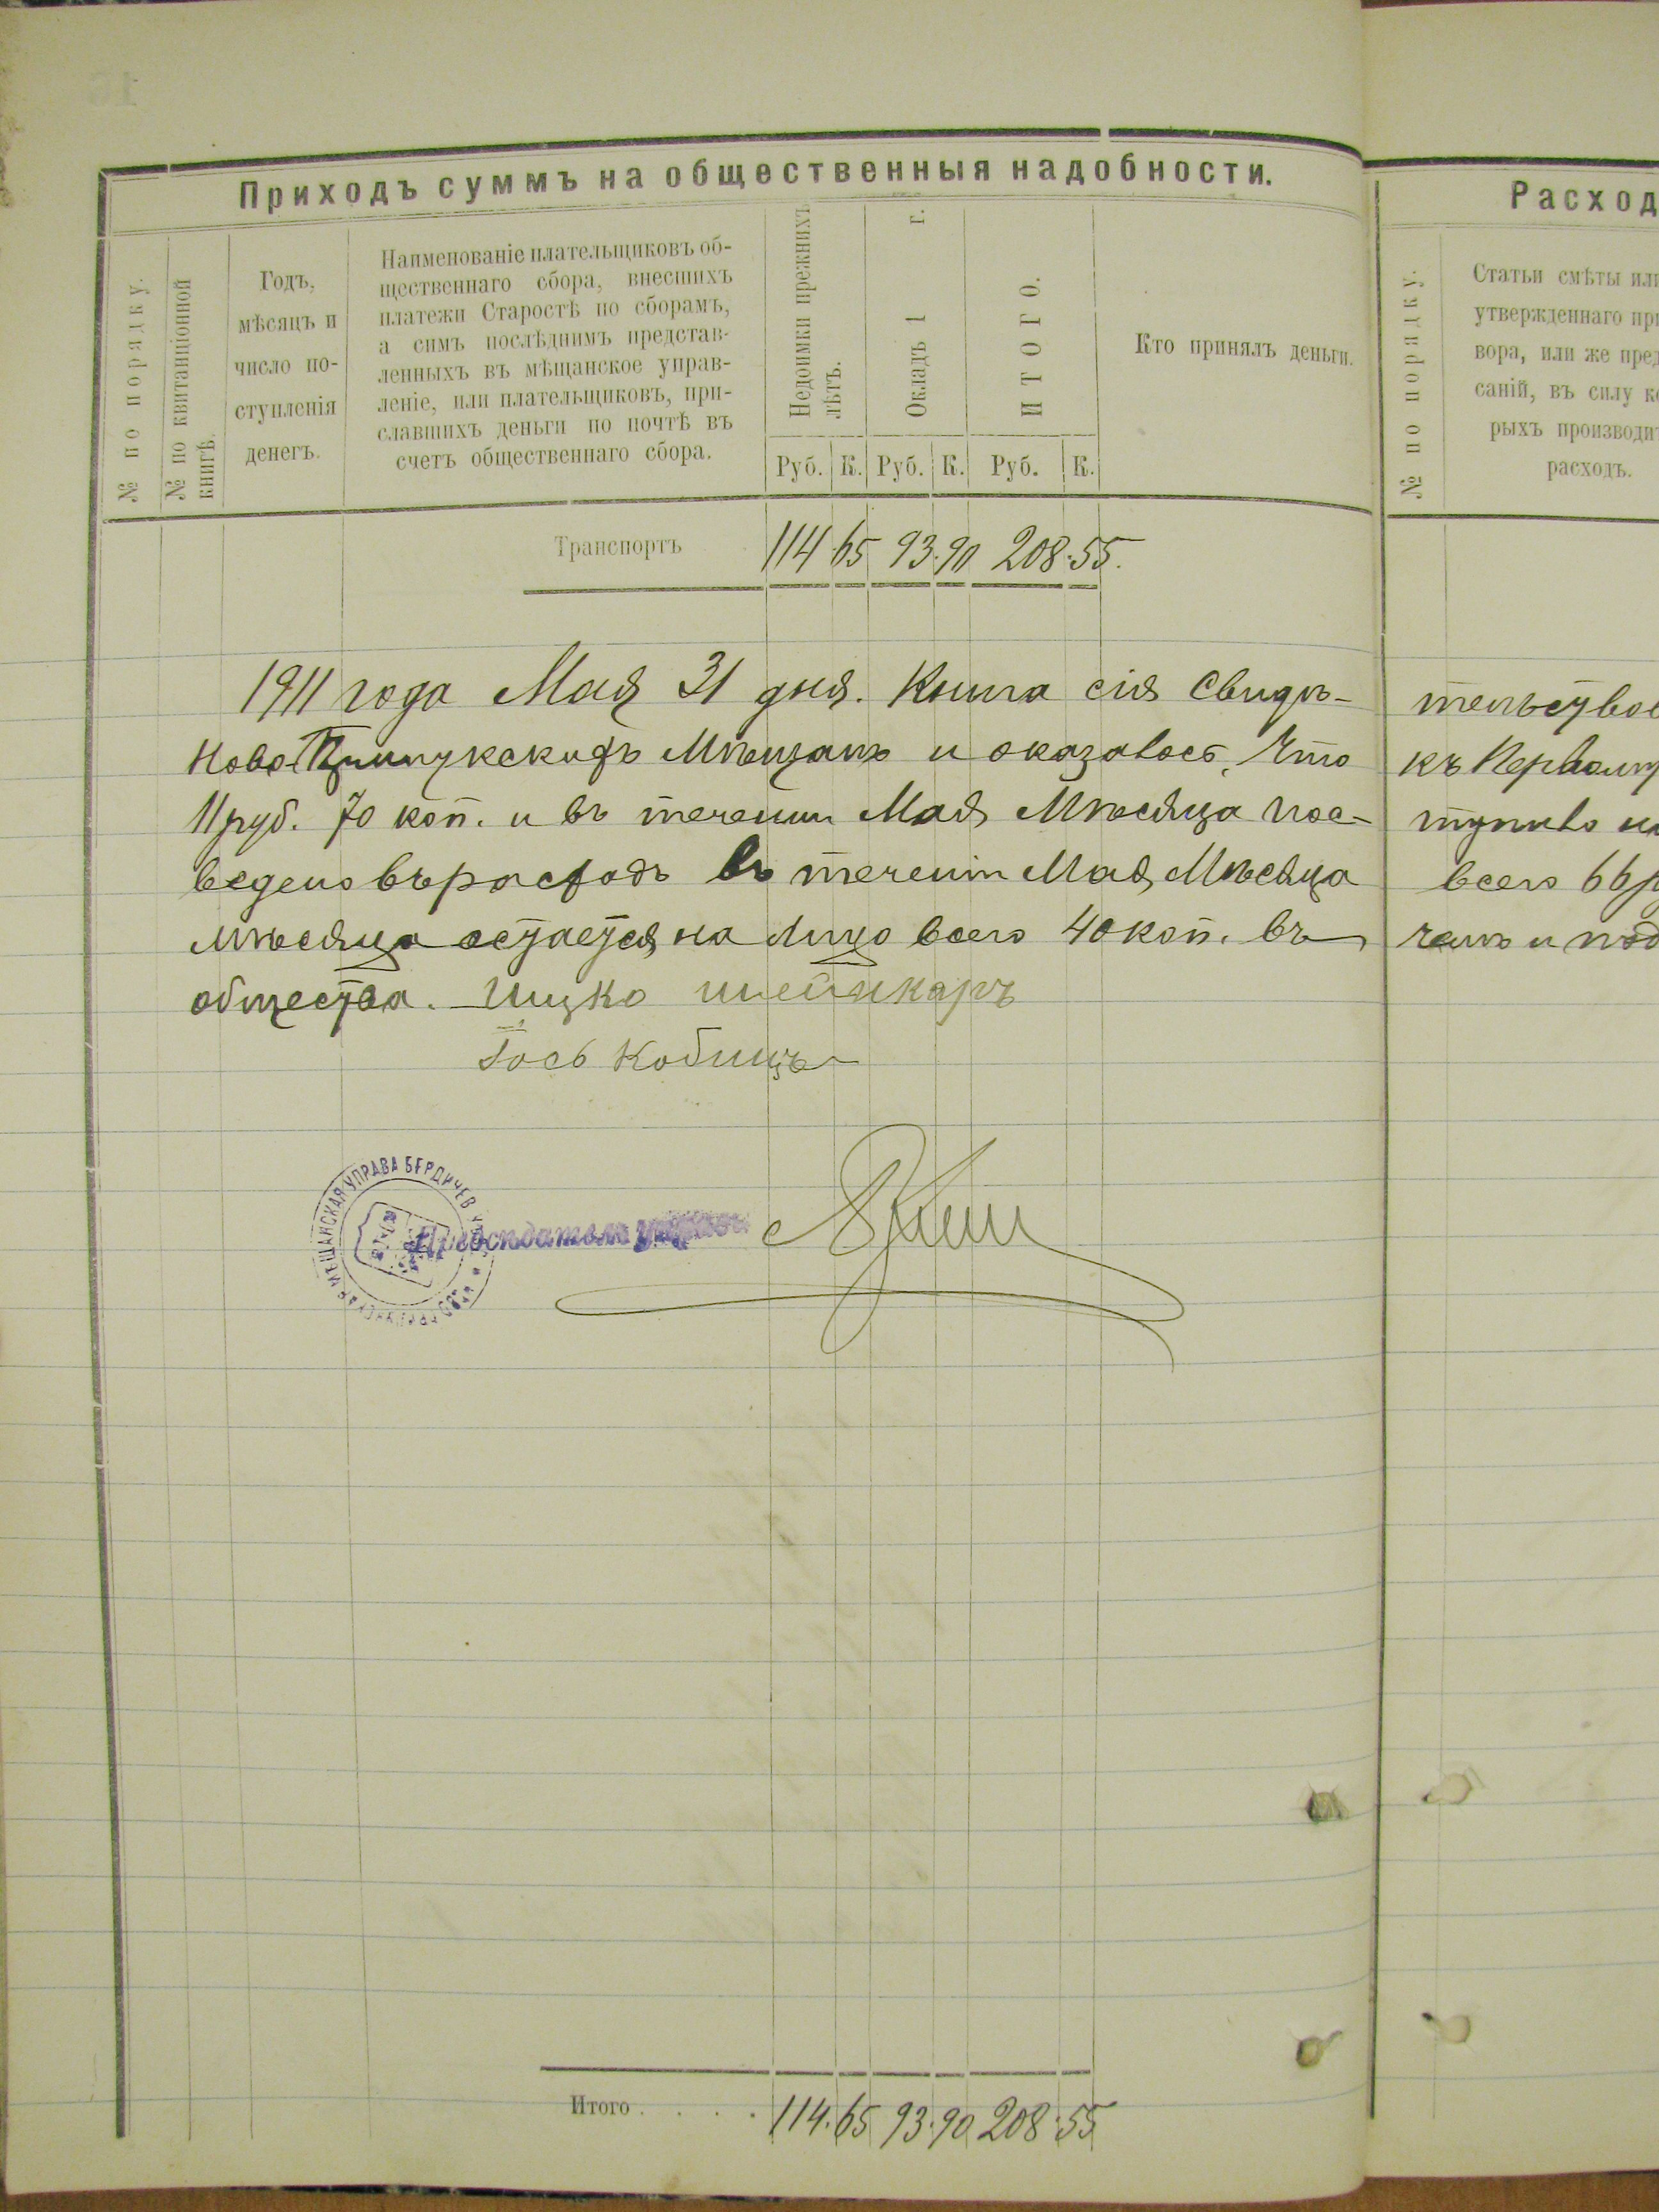 Приходъ суммъ на общественныя надобности.
№ по порядку.
№ по квитанціонной
книгѣ.
Годъ,
мѣсяцъ и
число по-
ступленія
денегъ.
Наименованіе плательщиковъ об-
щественнаго сбора, внесшихъ
платежи Старостѣ по сборамъ,
а симъ послѣднимъ представ-
ленныхъ въ мѣщанское управ-
леніе, или плательщиковъ, при-
славшихъ деньги по почтѣ въ
счетъ общественнаго сбора.
Недоимки прежнихъ
лѣтъ.
Окладъ 1 г.
ИТОГО.
Кто принялъ деньги.
Руб. К. Руб. К. Руб. К.
Транспортъ 114 65 93.90 208.55.
1911 года Мая 31 дня. Книга сія свидѣ-
Ново мѣщанъ и оказалось, что
11 руб. 70 коп. и въ теченіи Мая Мѣсяца пос-
ведено въ расходъ въ теченіи Мая Мѣсяца
мѣсяца остается на лицо всего 40 коп. въ
общества. Ицко Шейнкаръ
МѢЩАНСКАЯ УПРАВА БЕРДИЧЕВ
Предсѣдатель
Итого.... 114.65 93.90 208.55
Расход
№ по порядку.
Статьи смѣты или
утвержденнаго при
вора, или же пред
саній, въ силу ко
рыхъ производит
расходъ.
тельствов
къ Первому
тупило
всего 66 р
чемъ и под